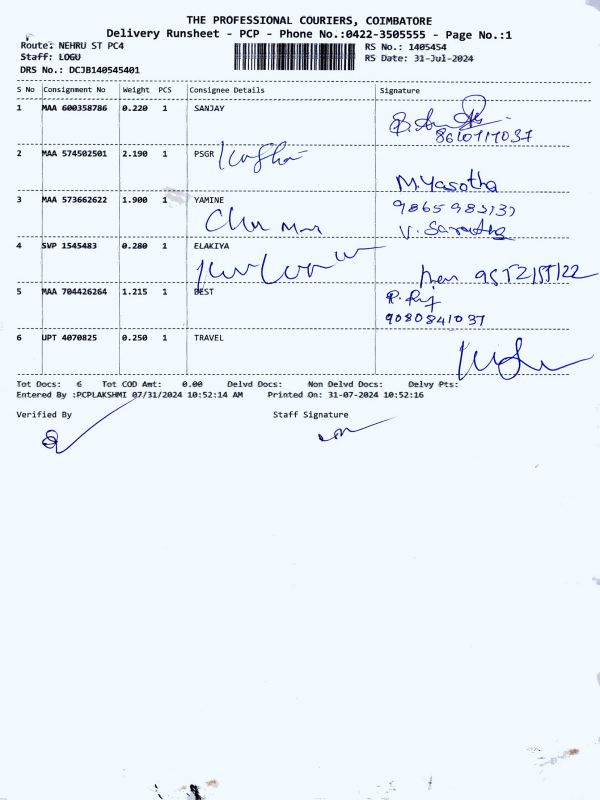 THE PROFESSIONAL COURIERS, COIMBATORE
Delivery Runsheet - PCP - Phone No.:0422-3505555 - Page No.:1
Route: NEHRU ST PC4
RS No.: 1405454
Staff: LOGU
RS Date: 31-Jul-2024
DRS No.: DCJB140545401
S No Consignment No Weight PCS Consignee Details Signature
1 MAA 600358786 0.220 1 SANJAY
2 MAA 574502501 2.190 1 PSGR
M.Yasotha
3 MAA 573662622 1.900 1 YAMINE
4 SVP 1545483 0.280 1 ELAKIYA
5 MAA 704426264 1.215 1 BEST
9080841037
6 UPT 4070825 0.250 1 TRAVEL
Tot Docs: 6 Tot COD Amt: 0.00 Delvd Docs: Non Delvd Docs: Delvy Pts:
Entered By :PCPLAKSHMI 07/31/2024 10:52:14 AM Printed On: 31-07-2024 10:52:16
Verified By Staff Signature